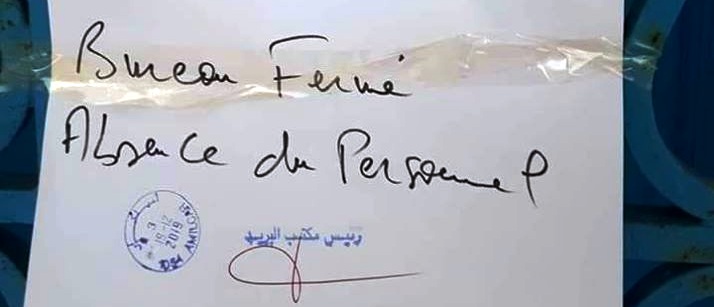 Bureau Fermé
Absence du Personnel
رئيس مكتب البريد
2019